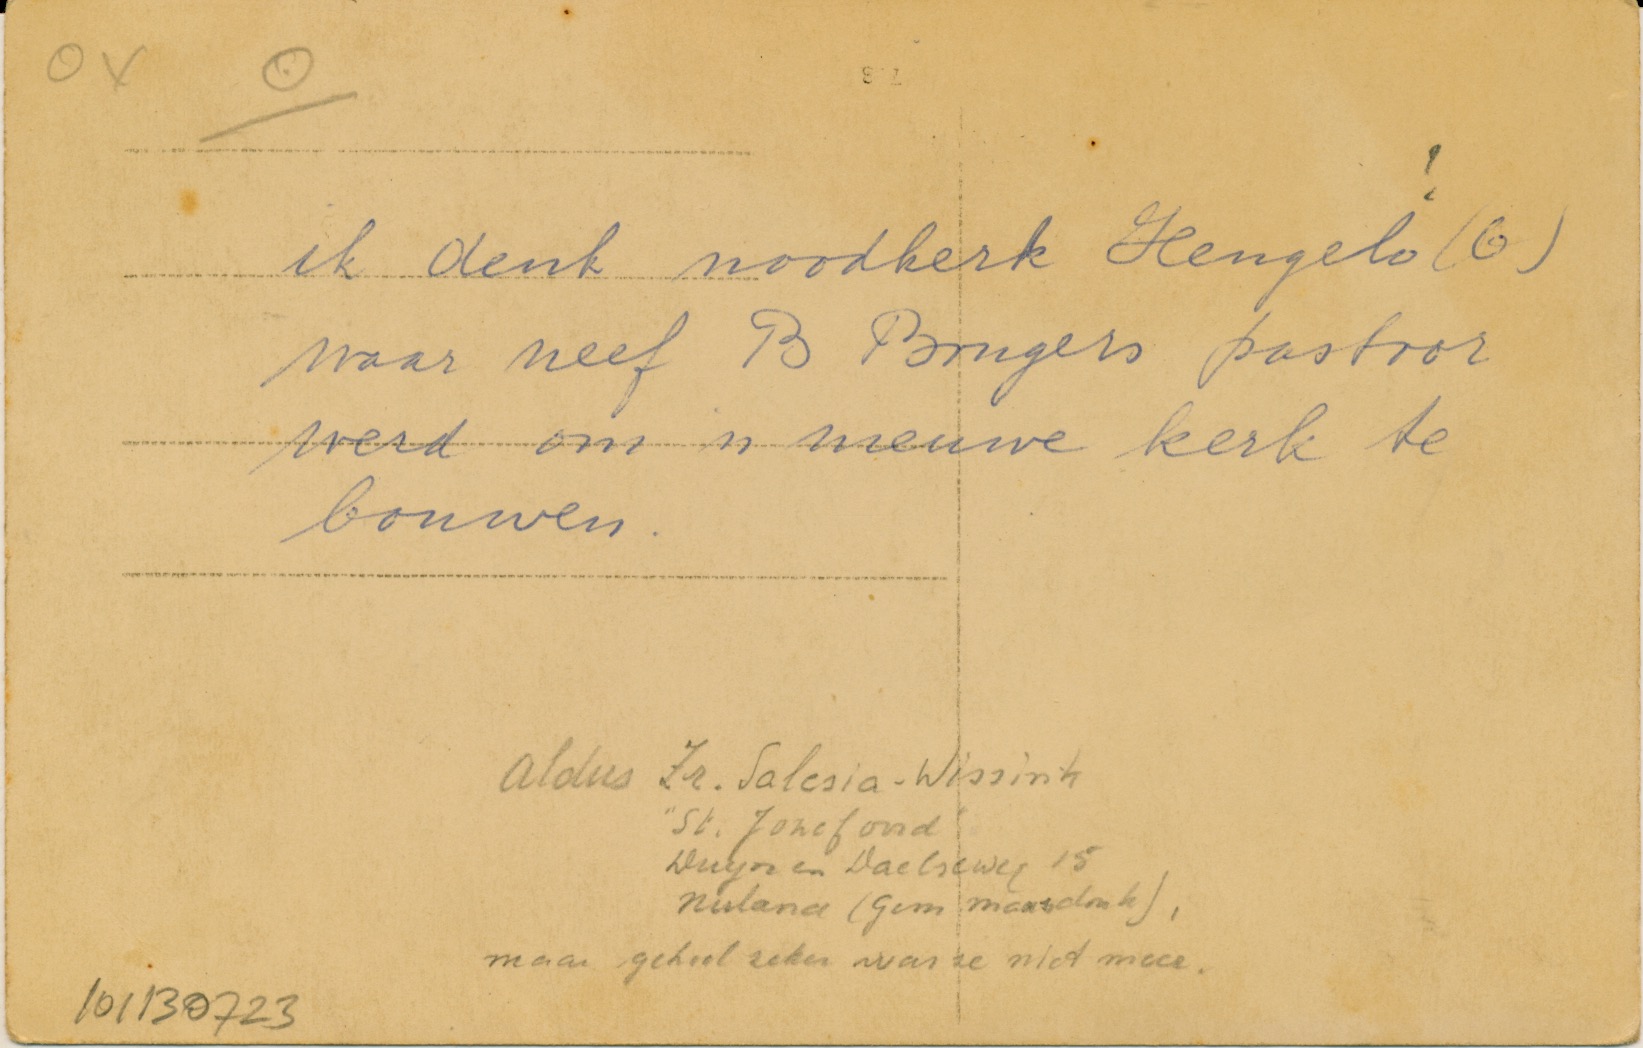 ik denk noodkerk Hengelo (O)
waar neef B Brugers pastoor
werd om 'n nieuwe kerk te
bouwen.
Aldus Zr. Salesia-Wissink
"St. Jozefoord"
en 15
Nuland (Gem maasdonk),
maar geheel zeker was ze niet meer.
101130723